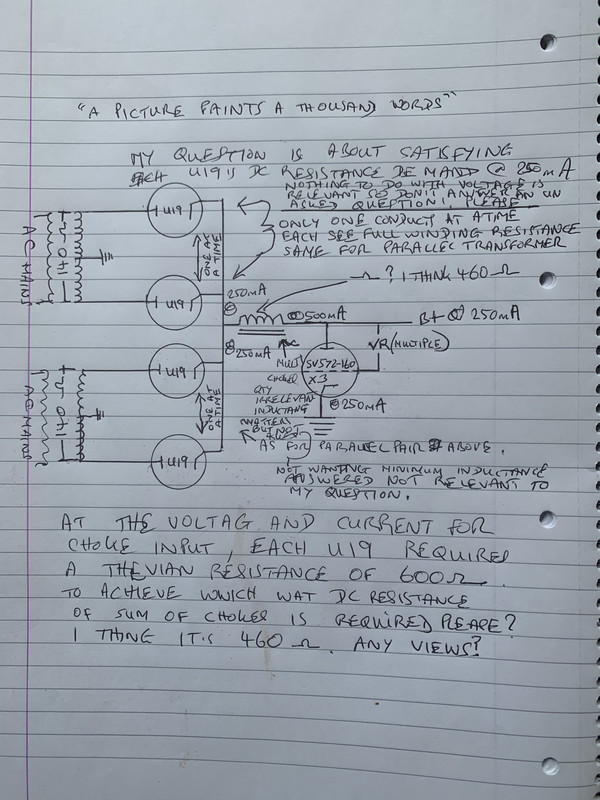 "A PICTURE PAINTS A THOUSAND WORDS"
MY QUESTION IS ABOUT SATISFYING
EACH U19'S DC RESISTANCE DEMAND @ 250mA
NOTHING TO DO WITH VOLTAGE IS
RELEVANT SO DON'T ANSWER AN UN
ASKED QUESTION PLEASE
ONLY ONE CONDUCT AT A TIME
EACH SEE FULL WINDING RESISTANCE
SAME FOR PARALLEL TRANSFORMER
U19
AC MAINS
140Ω
ONE AT A TIME
U19
250mA
Ω? I THINK 460Ω
@500mA
B+ @ 250mA
@250mA
DC
VR (MULTIPLE)
U19
MULTI
CHOKES
SV572-160
X3
QTY
IRRELEVAN
INDUCTANC
MATTERS
BUT NOT
@250mA
AC MAINS
140Ω
ONE AT A TIME
U19
AS FOR PARALLEL PAIR ABOVE.
NOT WANTING MINIMUM INDUCTANCE
ANSWERED NOT RELEVANT TO
MY QUESTION.
AT THE VOLTAG AND CURRENT FOR
CHOKE INPUT, EACH U19 REQUIRES
A THEVIAN RESISTANCE OF 600Ω.
TO ACHIEVE WHICH WAT DC RESISTANCE
OF SUM OF CHOKES IS REQUIRED PLEASE?
I THINK IT'S 460Ω. ANY VIEWS?